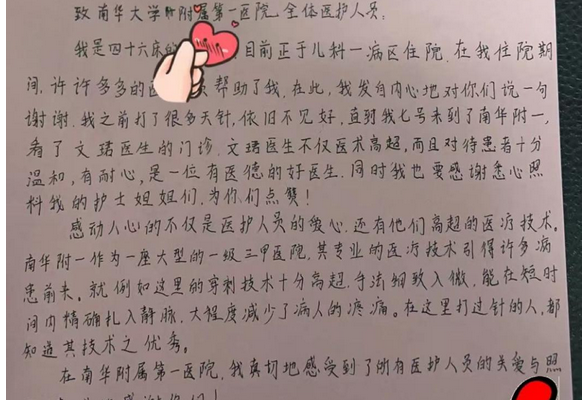 致南华大学附属第一医院全体医护人员:
我是四十六床的 目前正于儿科一病区住院.在我住院期
间,许许多多的医 员帮助了我.在此,我发自内心地对你们说一句
谢谢.我之前打了很多天针,依旧不见好,直到我七号来到了南华附一,
看了文珺医生的门诊.文珺医生不仅医术高超,而且对待患者十分
温和,有耐心,是一位有医德的好医生.同时我也要感谢悉心照
料我的护士姐姐们,为你们点赞!
感动人心的不仅是医护人员的爱心,还有他们高超的医疗技术.
南华附一作为一座大型的一级三甲医院,其专业的医疗技术引得许多病
患前来.就例如这里的穿刺技术十分高超,手法细致入微,能在短时
间内精确扎入静脉,大程度减少了病人的疼痛.在这里打过针的人,都
知道其技术之优秀。
在南华附属第一医院,我真切地感受到了所有医护人员的关爱与照
感谢你们!